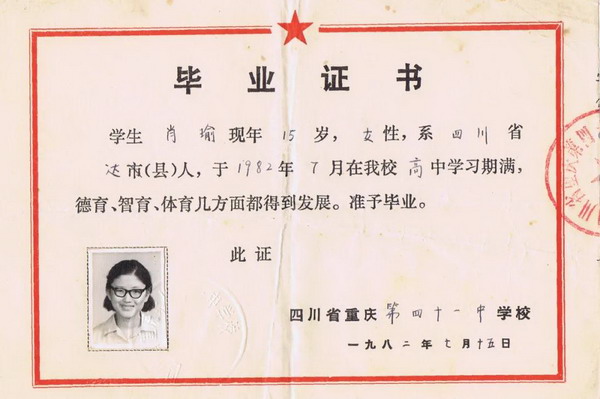 毕业证书
学生 肖瑜 现年 15 岁，女性，系 四川 省
达市(县)人，于 1982 年 7 月在我校 高 中学习期满，
德育、智育、体育几方面都得到发展。准予毕业。
此证
四川省重庆 第四十一中 学校
一九八二年七月十五日